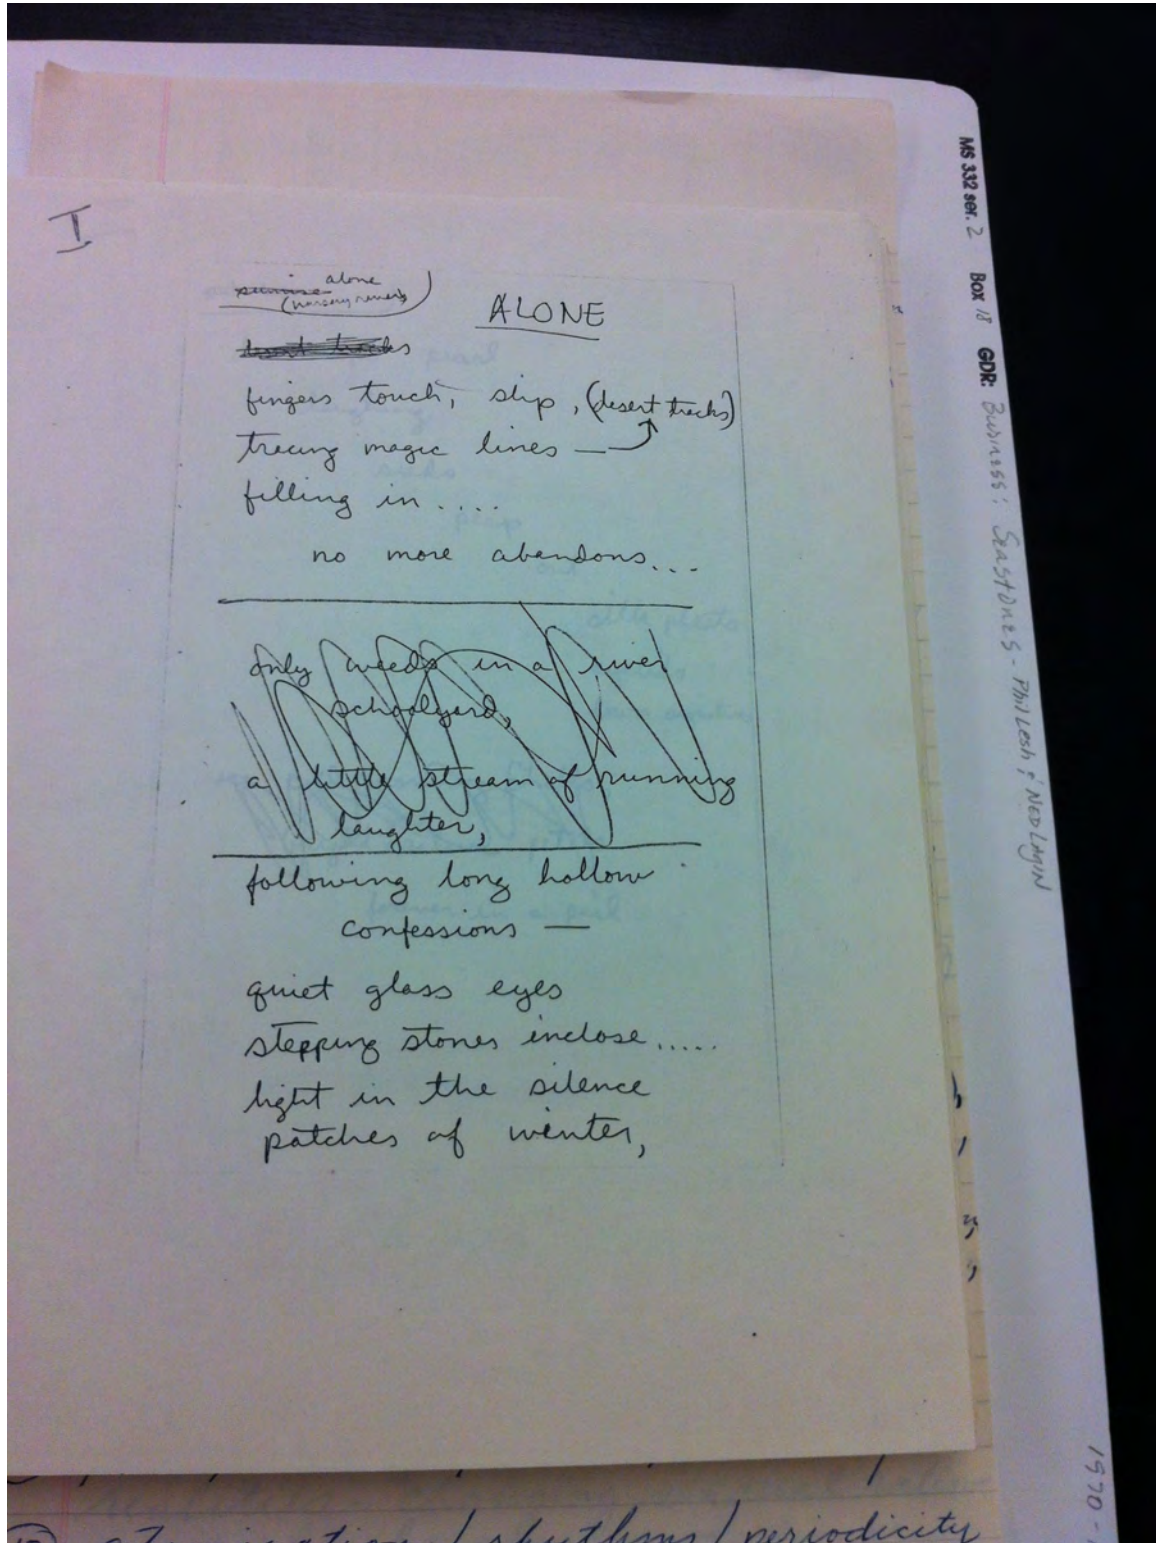 I
sunrise alone
(nursery
ALONE
desert tracks
fingers touch, slip, (desert tracks)
tracing magic lines —
filling in ....
no more abandons...
only weeds in a river
schoolyard,
a little stream of running
laughter,
following long hollow
confessions —
quiet glass eyes
stepping stones inclose.....
light in the silence
patches of winter,
MS 332 ser. 2 Box 18 GDR: Business: Seastones - Phil Lesh & Ned Lagin
1970 -
/ rhythms / periodicity